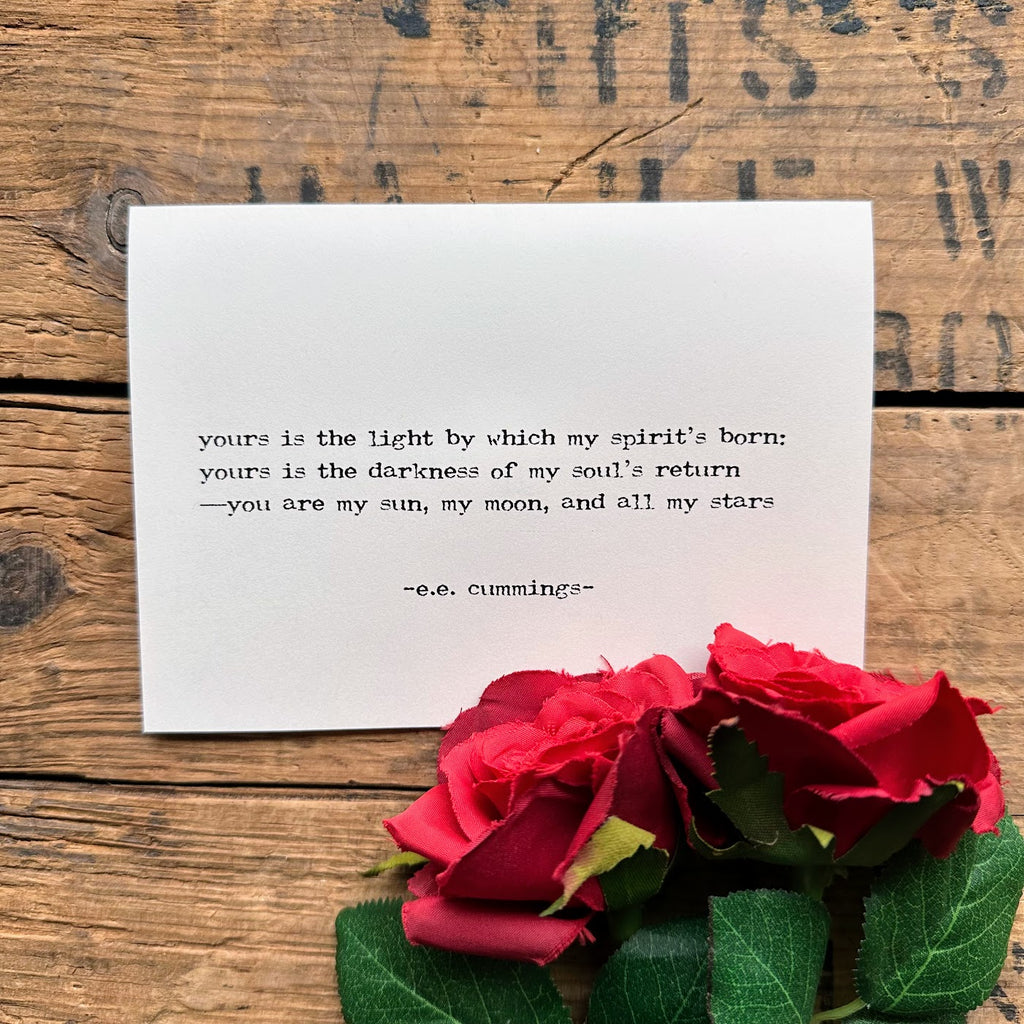 yours is the light by which my spirit's born:
yours is the darkness of my soul's return
—you are my sun, my moon, and all my stars
-e.e. cummings-